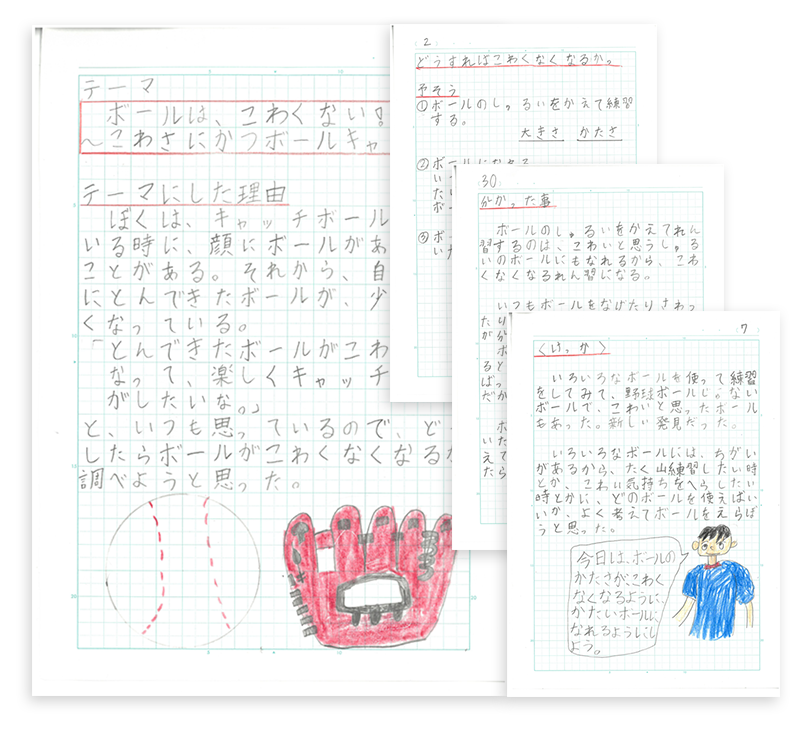 テーマ
ボールは、こわくない!
～こわさにかつボールキャ
テーマにした理由
ぼくは、キャッチボール
いる時に、顔にボールがあ
ことがある。それから、自
にとんできたボールが、少
くなっている。
「とんできたボールがこわ
なって、楽しくキャッチ
がしたいな。」
と、いつも思っているので、ど
したらボールがこわくなくなるか
調べようと思った。
2
どうすればこわくなくなるか。
予そう
①ボールのしゅるいをかえて練習
する。
大きさ かたさ
②ボールになれる
い
た
ボ
③ボ
いた
30
分かった事
ボールのしゅるいをかえてれん
習するのは、こわいと思うしゅる
いのボールにもなれるから、こわ
くなくなるれん習になる。
いつもボールをなげたりさわっ
たり
が分
ボ
ると
ばっ
だか
ボ
いた
えて
たら
7
〈けっか〉
いろいろなボールを使って練習
をしてみて、野球ボールじゃない
ボールで、こわいと思ったボール
もあった。新しい発見だった。
いろいろなボールには、ちがい
があるから、たく山練習したい時
とか、こわい気持ちをへらしたい
時とかに、どのボールを使えばい
いか、よく考えてボールをえらぼ
うと思った。
今日は、ボールの
かたさがこわく
なくなるように、
かたいボールに
なれるようにし
よう。